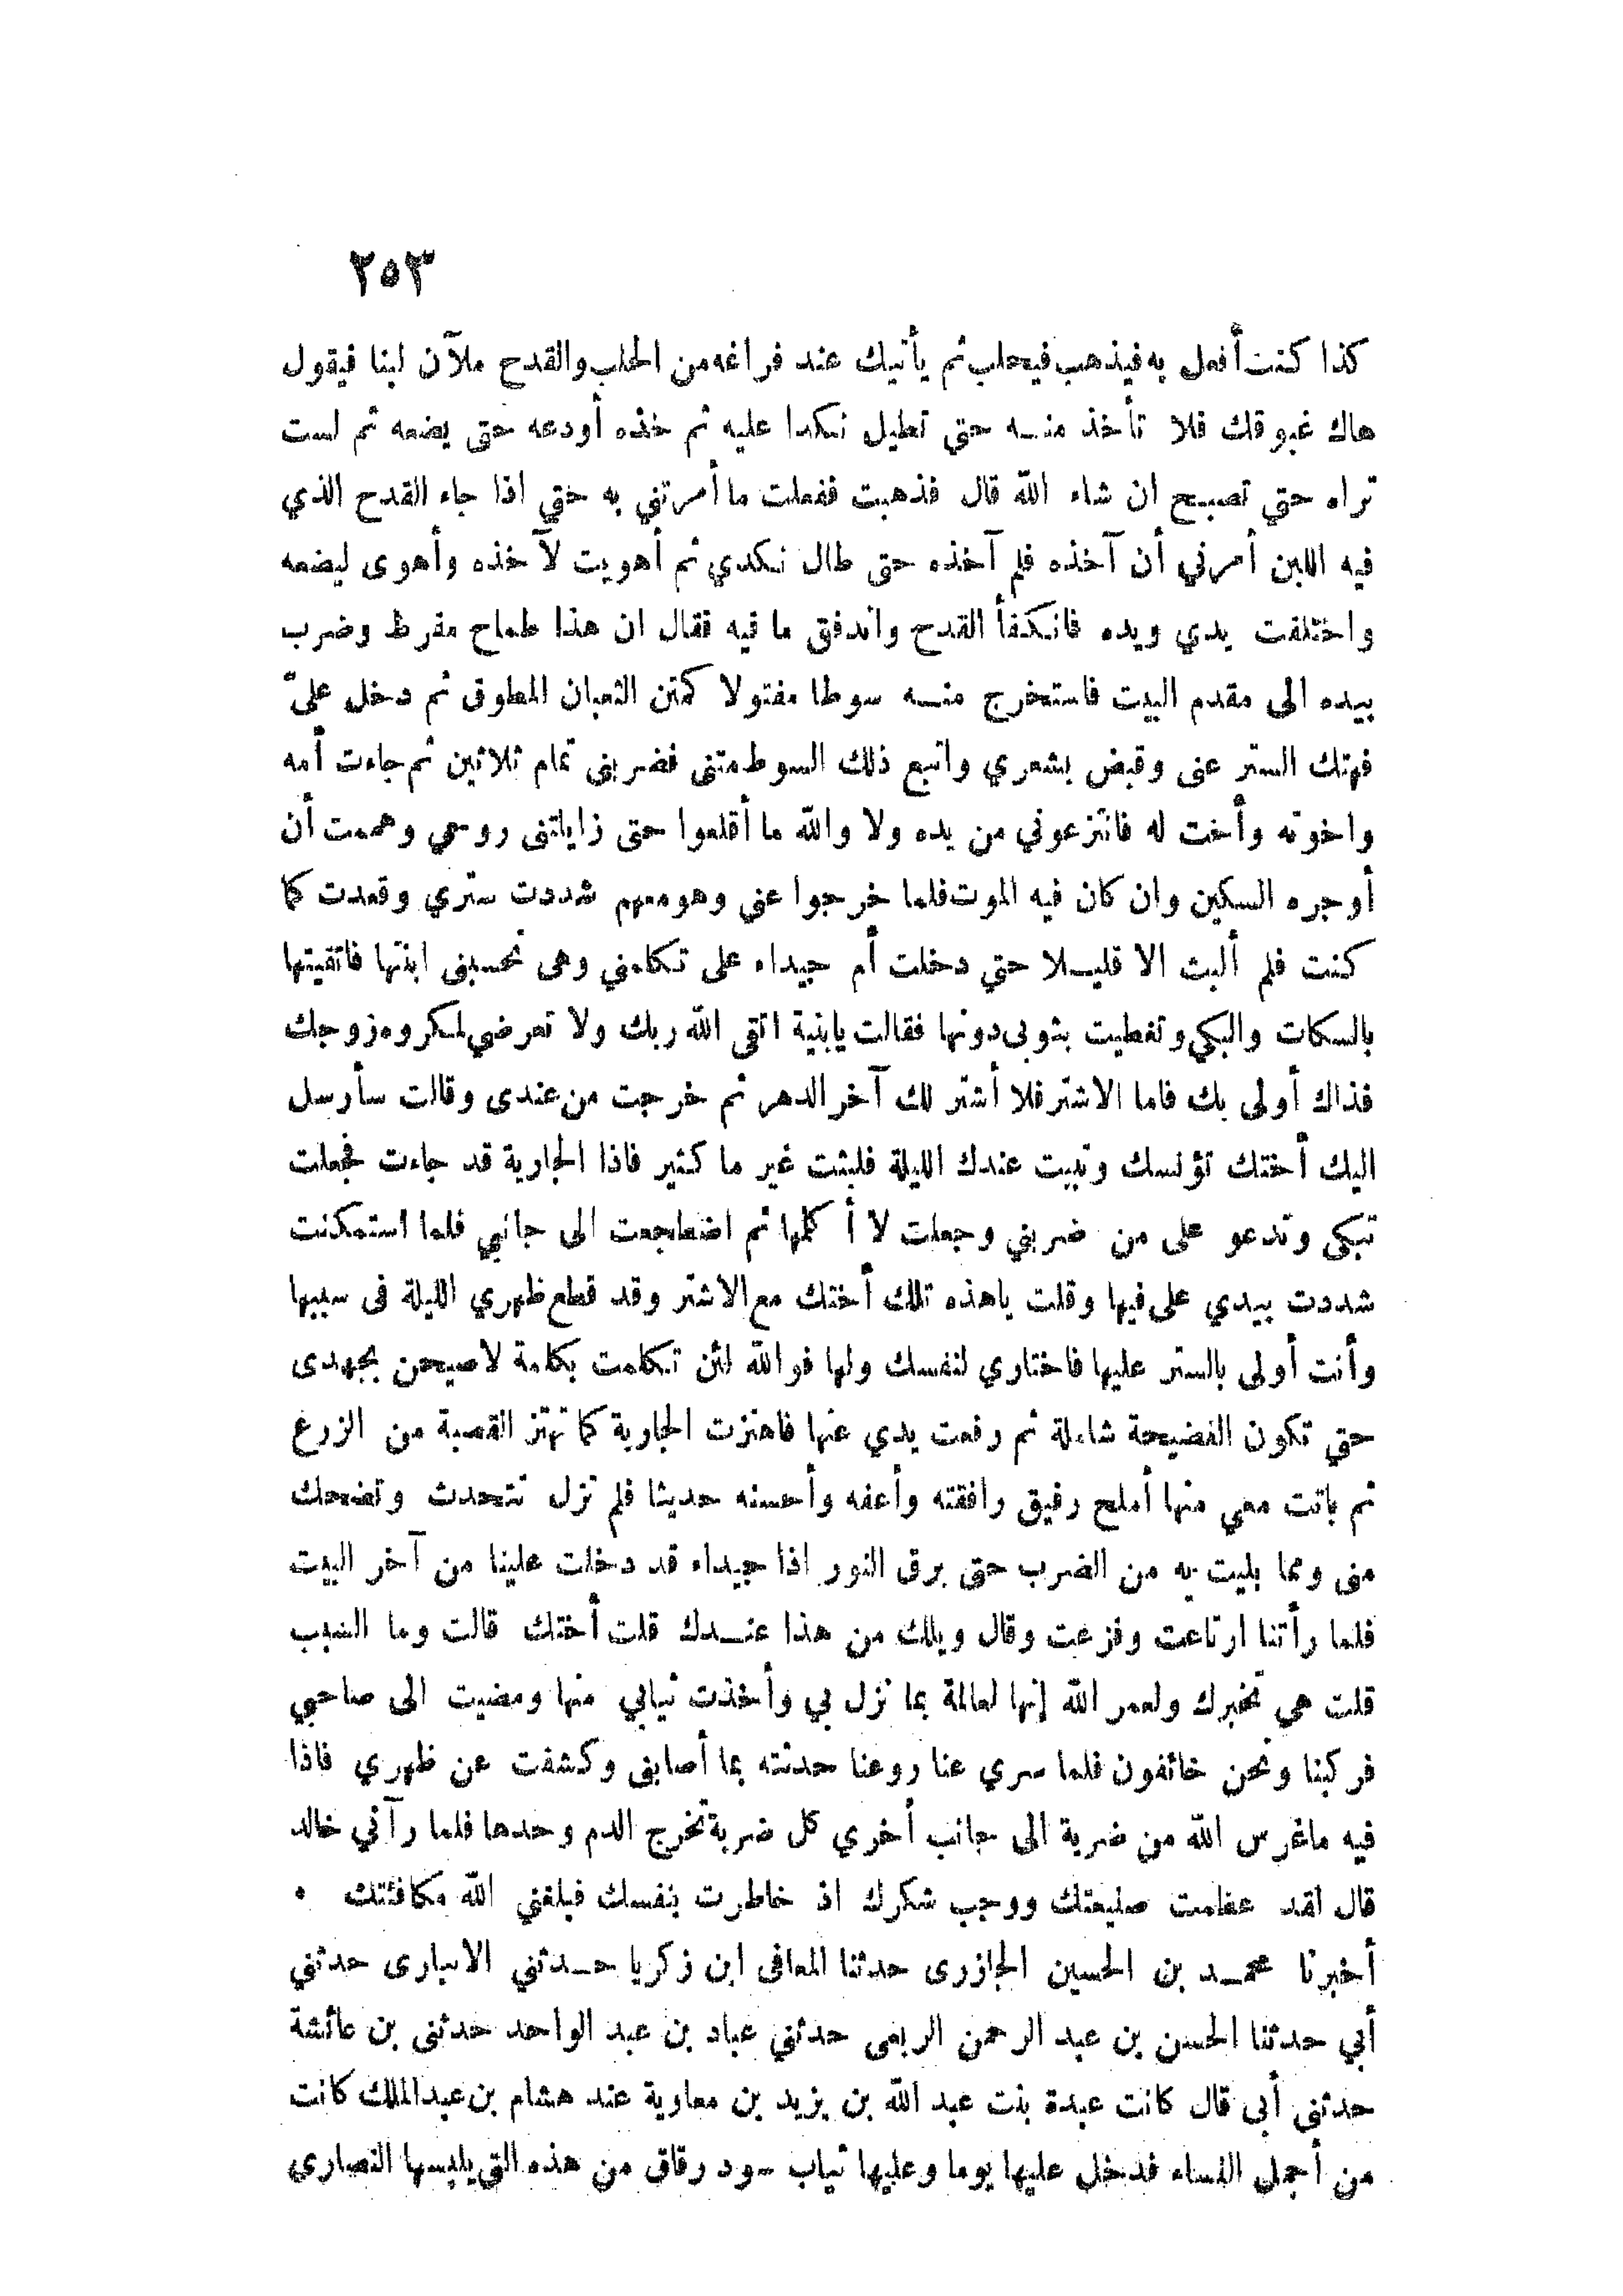 ٢٥٣
كذا كنت أفعل به فيذهب فيحلب ثم يأتيك عند فراغه من الحلب والقدح ملآن لبنا فيقول
هاك غبوقك فلا تأخذ منه حتى تطيل نكدا عليه ثم خذه أودعه حتى يضعه ثم لست
تراه حتى تصبح ان شاء الله قال فذهبت ففعلت ما أمرتني به حتي اذا جاء القدح الذي
فيه اللبن أمرني أن آخذه فلم آخذه حتى طال نكدي ثم أهويت لآخذه وأهوى ليضعه
واختلفت يدي ويده فانكفأ القدح واندفق ما فيه فقال ان هذا طماح مفرط وضرب
بيده الى مقدم البيت فاستخرج منه سوطا مفتولا كمتن الثعبان المطوق ثم دخل علىّ
فهتك الستر عنى وقبض بشعري واتبع ذلك السوط متنى فضربنى تمام ثلاثين ثم جاءت أمه
واخوته وأخت له فانتزعوني من يده ولا والله ما أقلعوا حتى زايلتنى روحي وهممت أن
أوجره السكين وان كان فيه الموت فلما خرجوا عنى وهو معهم شددت ستري وقعدت كما
كنت فلم ألبث الا قليلا حتي دخلت أم جيداء على تكلمني وهى تحسبنى ابنتها فاتقيتها
بالسكات والبكي وتغطيت بثوبى دونها فقالت يابنية اتقى الله ربك ولا تعرضي لمكروه زوجك
فذاك أولى بك فاما الاشتر فلا أشتر لك آخر الدهر ثم خرجت من عندى وقالت سأرسل
اليك أختك تؤنسك وتبيت عندك الليلة فلبثت غير ما كثير فاذا الجارية قد جاءت فجعلت
تبكى وتدعو على من ضربني وجعلت لا أكلمها ثم اضطجعت الى جانبي فلما استمكنت
شددت بيدي على فيها وقلت ياهذه تلك أختك مع الاشتر وقد قطع ظهري الليلة فى سببها
وأنت أولى بالستر عليها فاختاري لنفسك ولها فوالله لئن تكلمت بكلمة لاصيحن بجهدى
حتى تكون الفضيحة شاملة ثم رفعت يدي عنها فاهتزت الجارية كما تهتز القصبة من الزرع
ثم باتت معي منها أملح رفيق رافقته وأعفه وأحسنه حديثا فلم تزل تتحدث وتضحك
منى ومما بليت به من الضرب حتى برق النور اذا جيداء قد دخلت علينا من آخر البيت
فلما رأتنا ارتاعت وفزعت وقال ويلك من هذا عندك قلت أختك قالت وما السبب
قلت هي تخبرك ولعمر الله إنها لعالمة بما نزل بي وأخذت ثيابي منها ومضيت الى صاحبي
فركبنا ونحن خائفون فلما سري عنا روعنا حدثته بما أصابنى وكشفت عن ظهري فاذا
فيه ماغرس الله من ضربة الى جانب أخري كل ضربة تخرج الدم وحدها فلما رآني خالد
قال لقد عظمت صنيعتك ووجب شكرك اذ خاطرت بنفسك فبلغني الله مكافئتك ٠
أخبرنا محمد بن الحسين الجازرى حدثنا المعافى ابن زكريا حدثني الانبارى حدثني
أبي حدثنا الحسن بن عبد الرحمن الربعى حدثني عباد بن عبد الواحد حدثنى بن عائشة
حدثنى أبى قال كانت عبدة بنت عبد الله بن يزيد بن معاوية عند هشام بن عبدالملك كانت
من أجمل النساء فدخل عليها يوما وعليها ثياب سود رقاق من هذه التي يلبسها النصارى